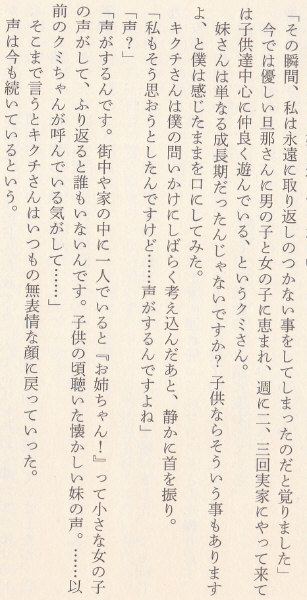 「その瞬間、私は永遠に取り返しのつかない事をしてしまったのだと覚りました」
今では優しい旦那さんに男の子と女の子に恵まれ、週に二、三回実家にやって来て
は子供達中心に仲良く遊んでいる、というクミさん。
妹さんは単なる成長期だったんじゃないですか？ 子供ならそういう事もあります
よ、と僕は感じたままを口にしてみた。
キクチさんは僕の問いかけにしばらく考え込んだあと、静かに首を振り。
「私もそう思おうとしたんですけど……声がするんですよね」
「声？」
「声がするんです。街中や家の中に一人でいると『お姉ちゃん！』って小さな女の子
の声がして、ふり返ると誰もいないんです。子供の頃聴いた懐かしい妹の声。……以
前のクミちゃんが呼んでいる気がして……」
そこまで言うとキクチさんはいつもの無表情な顔に戻っていった。
声は今も続いているという。